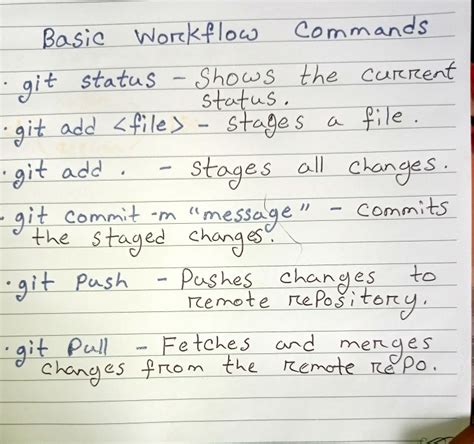 Basic Workflow Commands
· git status - Shows the current
status.
· git add <file> - stages a file.
· git add . - stages all changes.
· git commit -m "message" - commits
the staged changes.
· git Push - Pushes changes to
remote rePository.
· git Pull - Fetches and merges
changes from the remote rePo.